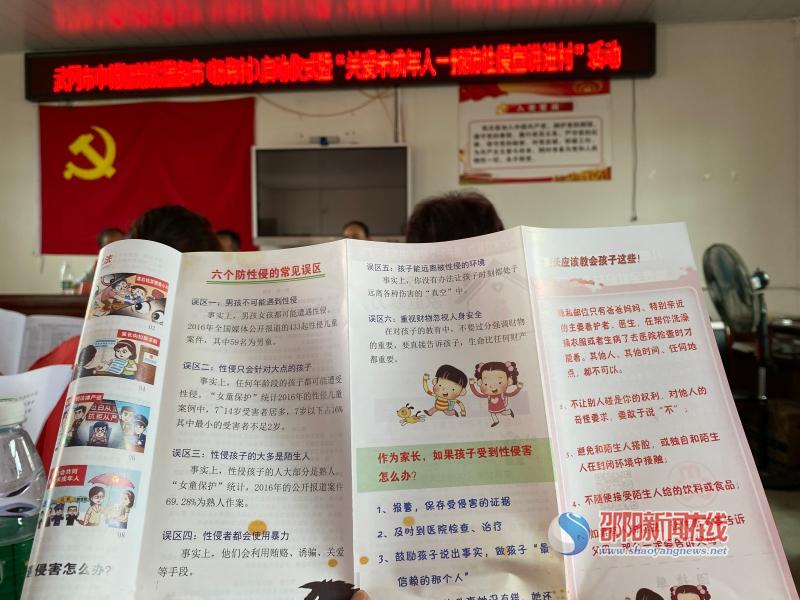 启动仪式暨“关爱未成年人—预防性侵宣讲进村”活动
入党誓词
六个防性侵的常见误区
误区一：男孩不可能遇到性侵
事实上，男孩女孩都可能遭遇性侵，
2016年全国媒体公开报道的433起性侵儿童
案件，其中59名为男童。
误区二：性侵只会针对大点的孩子
事实上，任何年龄段的孩子都可能遭受
性侵。“女童保护”统计2016年的性侵儿童
案例中，7~14岁受害者居多，7岁以下占16%
其中最小的受害者不足2岁。
误区三：性侵孩子的大多是陌生人
事实上，性侵孩子的人大部分是熟人，
“女童保护”统计，2016年的公开报道案件
69.28%为熟人作案。
误区四：性侵者都会使用暴力
事实上，他们会利用贿赂、诱骗、关爱
等手段。
侵害怎么办？
误区五：孩子能远离被性侵的环境
事实上，你没有办法让孩子时刻都处于
远离各种伤害的“真空”中。
误区六：重视财物忽视人身安全
在对孩子的教育中，不要过分强调财物
的重要，要直接告诉孩子，生命比任何财产
都重要。
作为家长，如果孩子受到性侵害
怎么办？
1、报警，保存受侵害的证据
2、及时到医院检查、治疗
3、鼓励孩子说出事实，做孩子“最
信赖的那个人”
长应该教会孩子这些！
隐私部位只有爸爸妈妈、特别亲近
的主要看护者、医生，在帮你洗澡
换衣服或者生病了去医院检查时才
能看。其他人、其他时间、任何地
点，都不可以。
不让别人碰是你的权利，对他人的
奇怪要求，要敢于说“不”；
避免和陌生人搭脸，或独自和陌生
人在封闭环境中接触；
不随便接受陌生人给的饮料或食品；
告诉
邵阳新闻在线
www.shaoyangnews.net